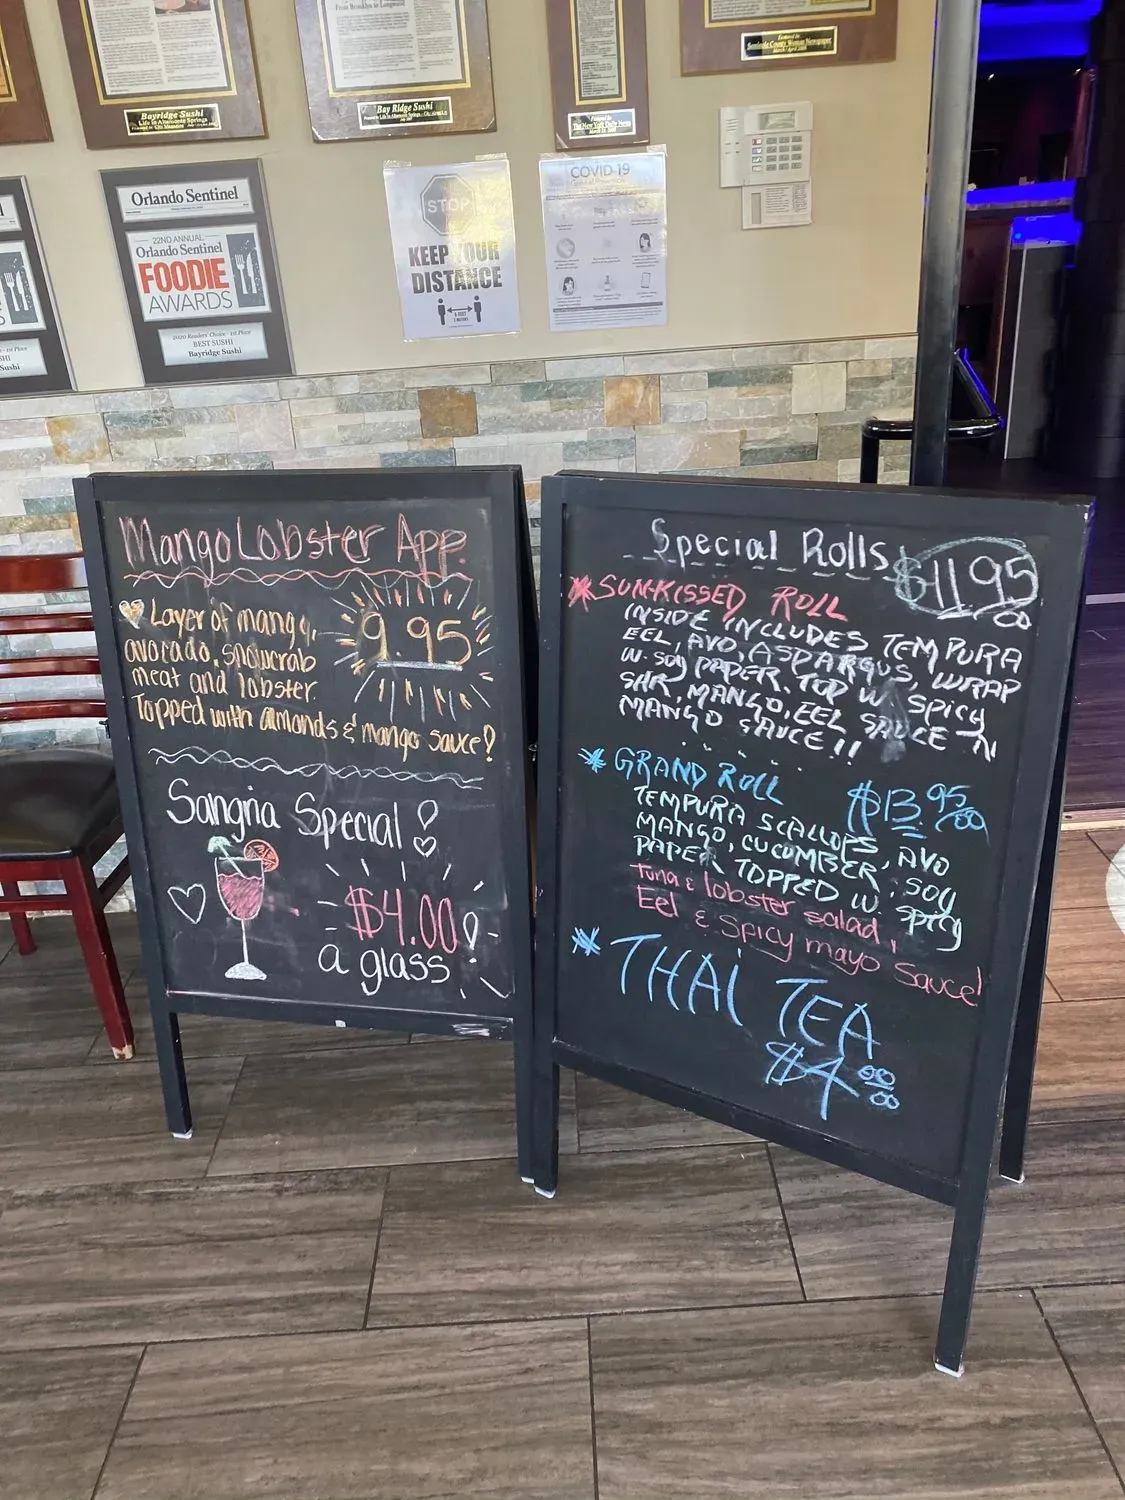 From Brooklyn to Longwood
Bayridge Sushi
Life in Altamonte Springs
Bay Ridge Sushi
The New York Daily News
Seminole County Woman Newspaper
March / April
Orlando Sentinel
22ND ANNUAL
Orlando Sentinel
FOODIE
AWARDS
2020 Readers' Choice - 1st Place
BEST SUSHI
Bayridge Sushi
1st Place
Sushi
STOP
KEEP YOUR
DISTANCE
6 FEET
COVID-19
Mango Lobster App.
Layer of mango,
avocado, snowcrab
meat and lobster.
Topped with almonds & mango sauce!
9.95
Sangria Special!
$4.00!
a glass
Special Rolls
$11.95
SUN-KISSED ROLL
INSIDE INCLUDES TEMPURA
EEL, AVO, ASPARGUS, WRAP
W. SOY PAPER. TOP W. SPICY
SHR, MANGO, EEL SAUCE N
MANGO SAUCE!!
GRAND ROLL
$13.95
TEMPURA SCALLOPS, AVO
MANGO, CUCUMBER, SOY
PAPER TOPPED W. SPICY
Tuna & lobster salad,
Eel & Spicy mayo Sauce!
THAI TEA
$4.00